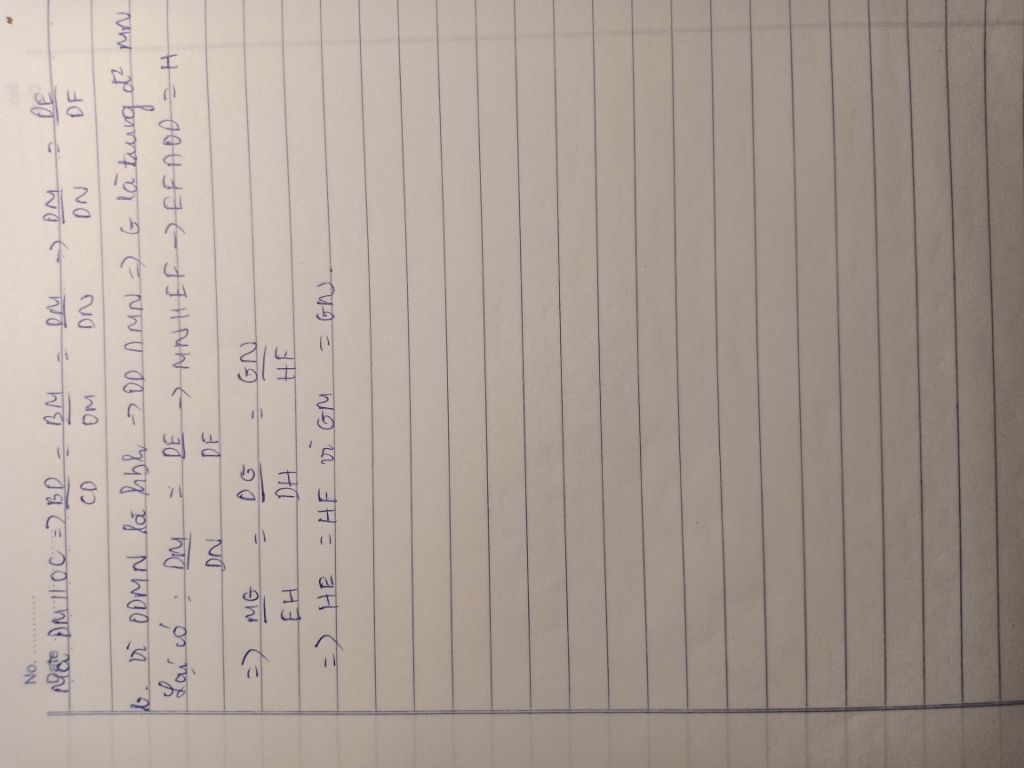 No. ............
Date
DM // OC => BD/CD = BM/OM = DM/DN → DM/DN = DE/DF
b. Vì ODMN là hbh → OD ∩ MN => G là trung đ² MN
Lại có : DM/DN = DE/DF → MN // EF → EF ∩ OD = H
=> MG/EH = DG/DH = GN/HF
=> HE = HF vì GM = GN.